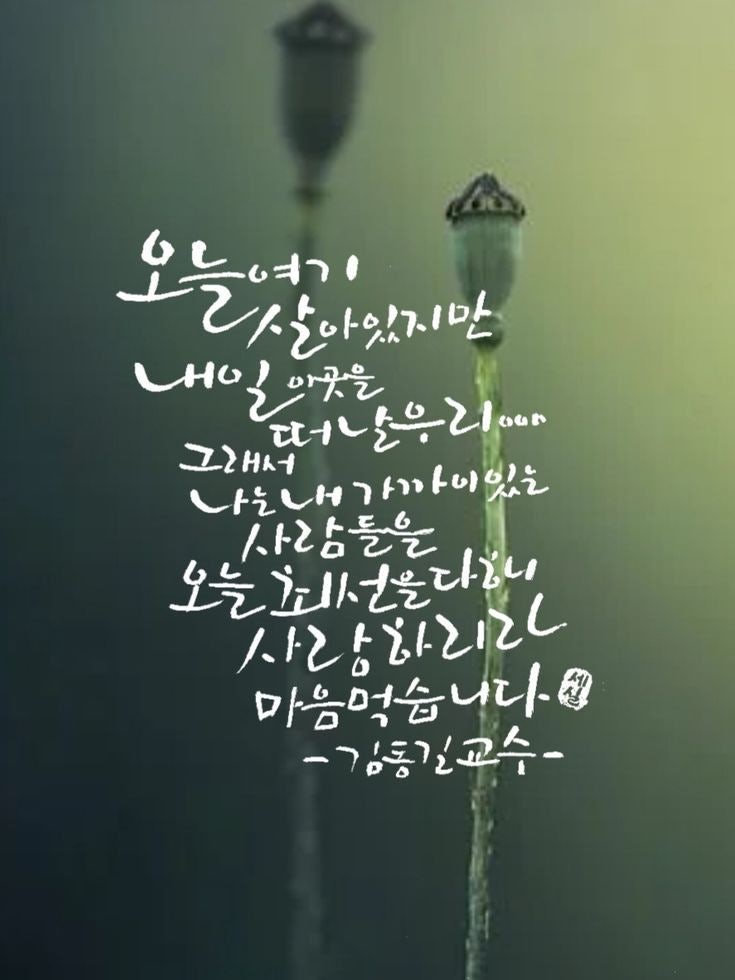 오늘 여기
살아있지만
내일 이곳을
떠날 우리....
그래서
나는 내 가까이 있는
사람들을
오늘 최선을 다해
사랑하리라
마음먹습니다.
세실
-김동길 교수-